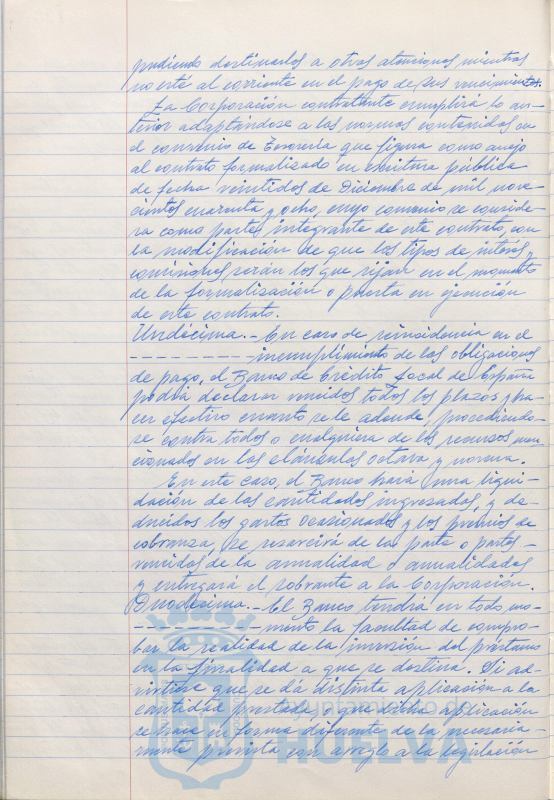 pudiendo destinarlos a otras atenciones mientras
no esté al corriente en el pago de sus vencimientos.
La Corporación contratante cumplirá lo an-
terior adaptándose a las normas contenidas en
el convenio de Tesorería que figura como anejo
al contrato formalizado en escritura pública
de fecha veintidos de Diciembre de mil nove-
cientos cuarenta y ocho, cuyo convenio se conside-
ra como parte integrante de este contrato, con
la modificación de que los tipos de interés y
comisiones serán los que rijan en el momento
de la formalización o puesta en ejecución
de este contrato.
Undécima.- En caso de reincidencia en el
- - - - - - - - - incumplimiento de las obligaciones
de pago, el Banco de Crédito Local de España
podrá declarar vencidos todos los plazos y ha-
cer efectivo cuanto se le adeude, procediendo-
se contra todos o cualquiera de los recursos men-
cionados en las cláusulas octava y novena.
En este caso, el Banco hará una liqui-
dación de las cantidades ingresadas, y de-
ducidos los gastos ocasionados y los premios de
cobranza, se resarcirá de la parte o partes
vencidas de la anualidad o anualidades
y entregará el sobrante a la Corporación.
Duodécima.- El Banco tendrá en todo mo-
- - - - - - - - - mento la facultad de compro-
bar la realidad de la inversión del préstamo
en la finalidad a que se destina. Si ad-
virtiese que se dá distinta aplicación a la
cantidad prestada, o que dicha aplicación
se hace en forma diferente de la necesaria-
mente prevista con arreglo a la legislación
Ayuntamiento de
HUELVA